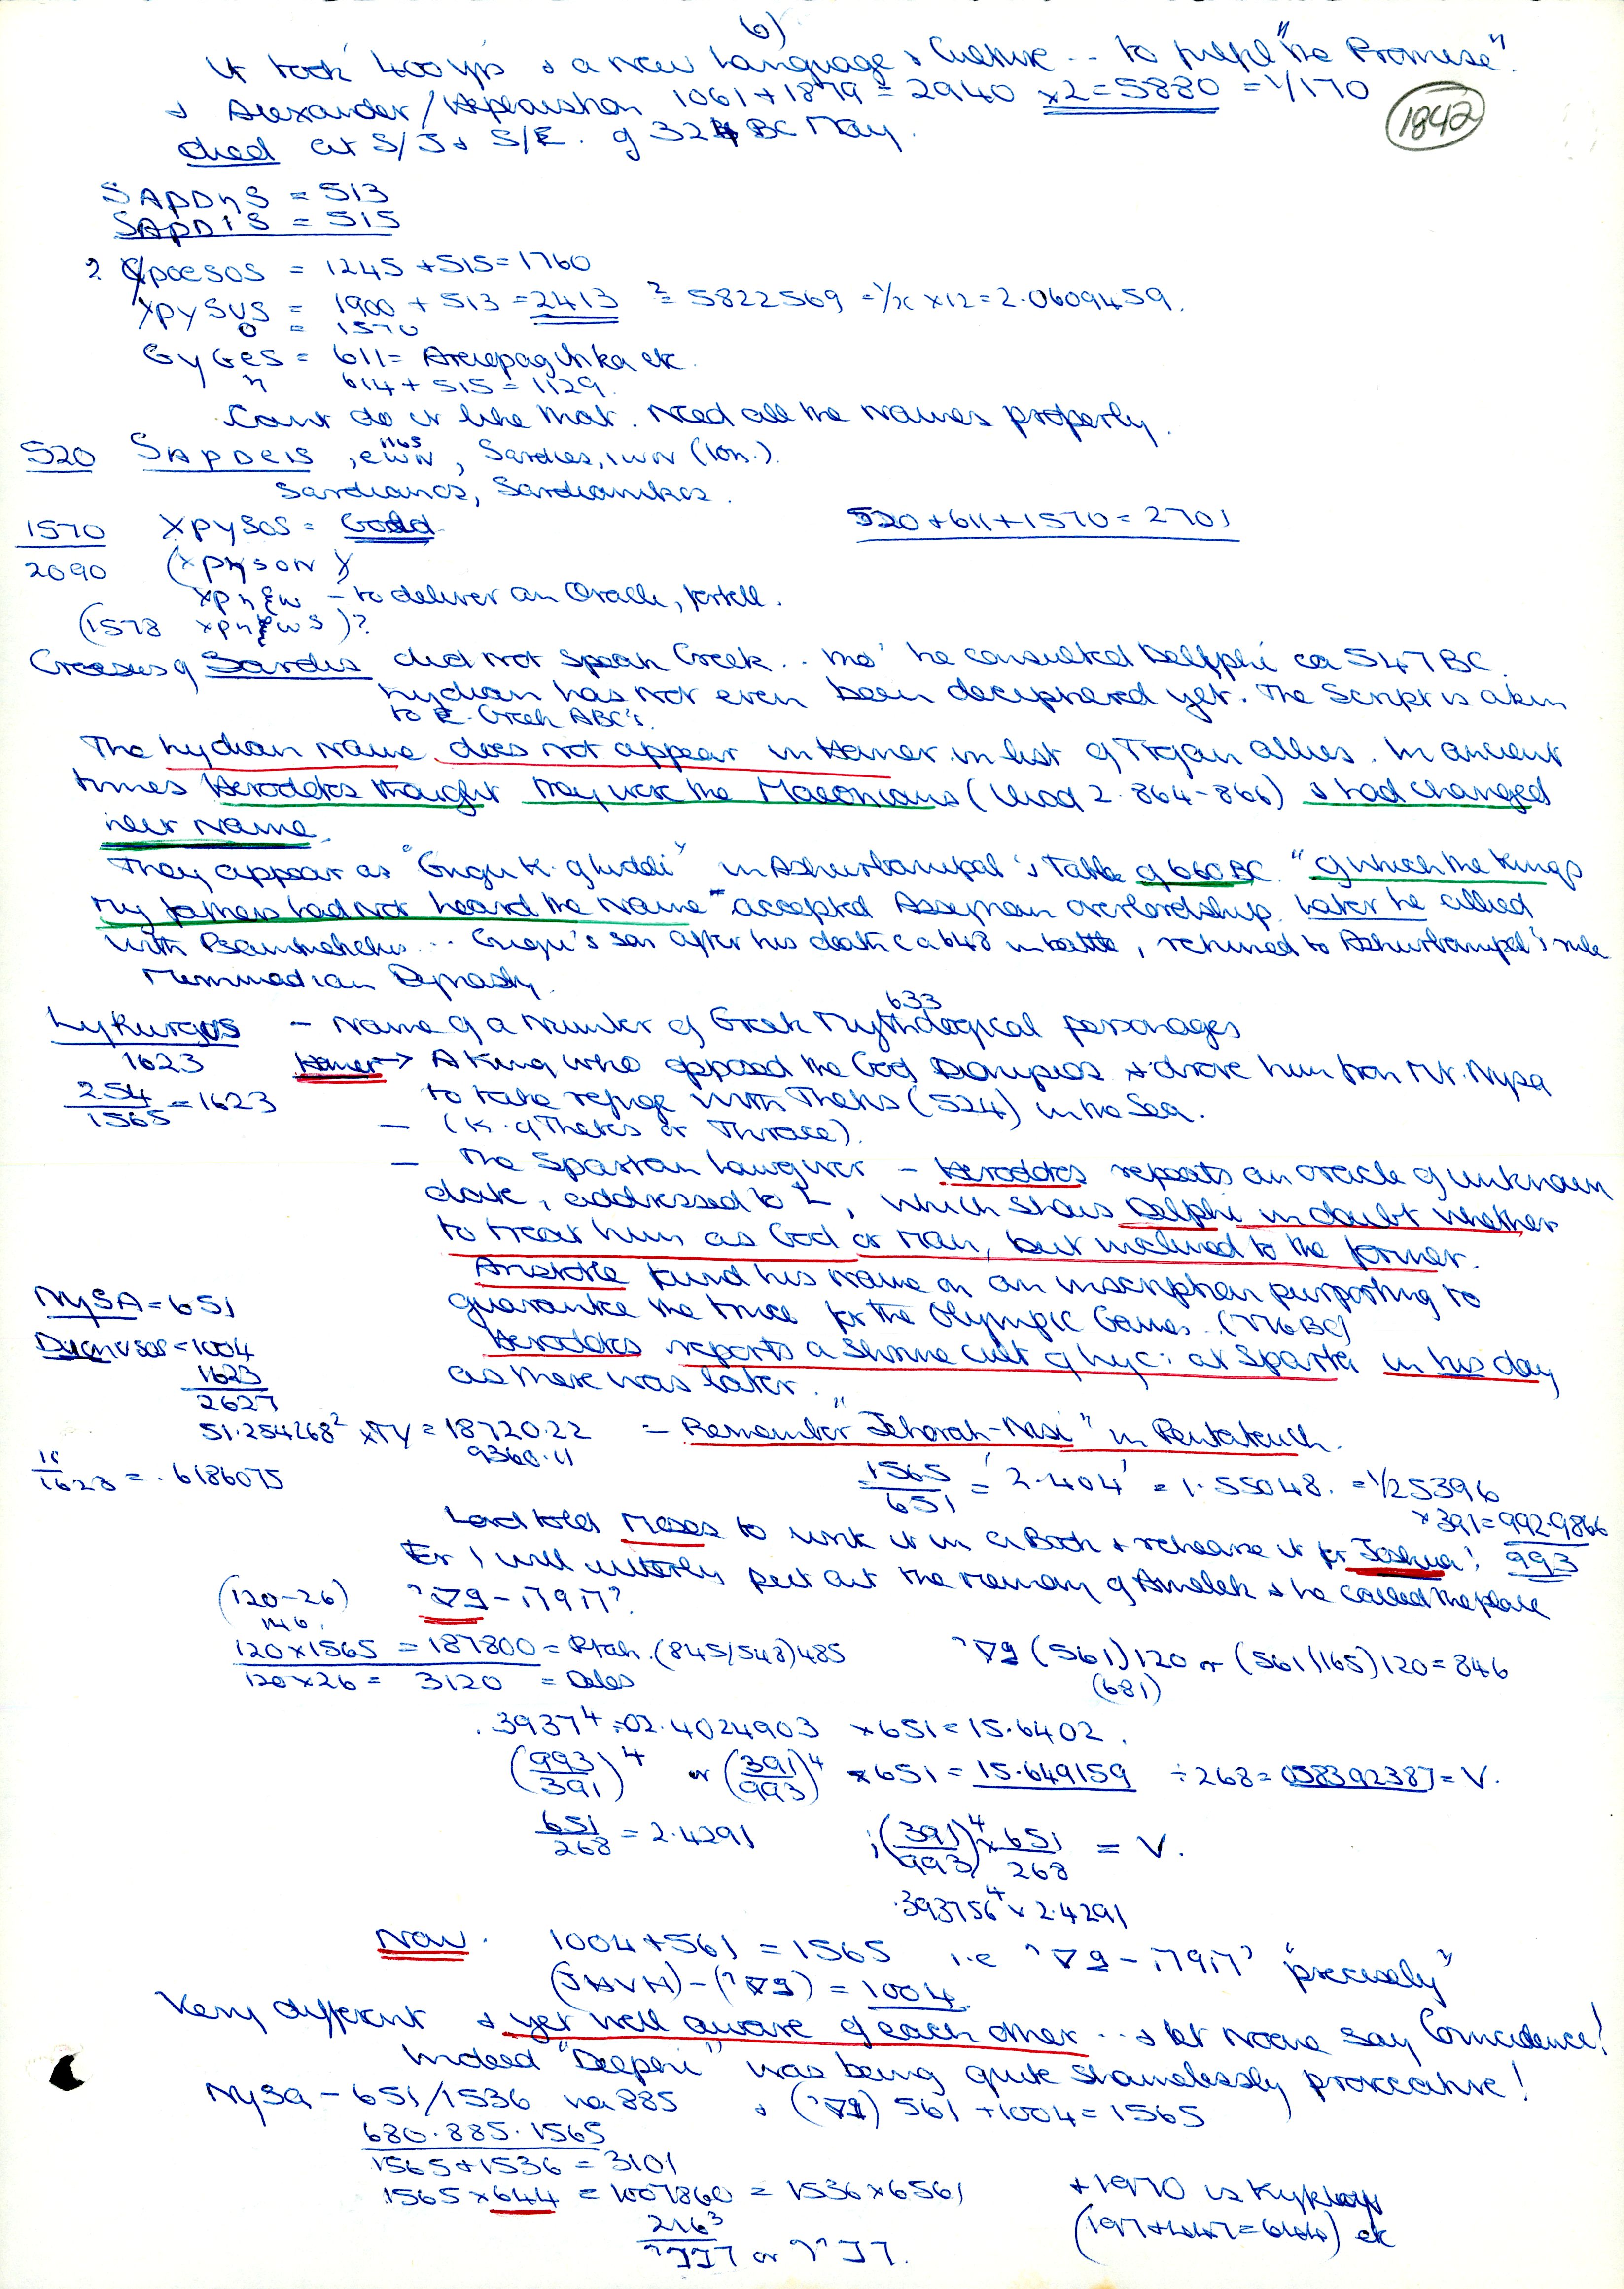 6)
It took 400 yrs & a new Language & Culture .. to fulfil "the Promise".
& Alexander / Hephaistion 1061 + 1879 = 2940 x2 = 5880 = 1/170
1842
died at S/J & S/E. of 324 BC May.
SAPDηS = 513
SAPDIS = 515
? poesos = 1245 + 515 = 1760
XPYSUS = 1900 + 513 = 2413 ² = 5822569 = 1/x x12 = 2.0609459.
O = 1570
GYGES = 611 = etc
η 614 + 515 = 1129.
Can't do it like that. Need all the names properly.
520 SAPDEIS, 1165 EWN, Sardies, IWN (Ion.).
Sardianos, Sardianikos.
1570 XPYSOS = Gold 520 + 611 + 1570 = 2701
2090 (XPηSON)
XPηξW - to deliver an Oracle, foretell.
(1578 XPηξWS)?
Croesus of Sardis did not speak Greek .. tho' he consulted Delphi ca 547 BC.
Lydian has not even been deciphered yet. The Script is akin
to E. Greek ABC's.
The Lydian name does not appear in Homer in list of Trojan allies. In ancient
times Herodotos thought they were the Maeonians (Iliad 2. 864-866) & had changed
their name.
They appear as "Gugu K. of Luddi" in Ashurbanipal's table of 660 BC. "of which the Kings
my fathers had not heard the name" accepted Assyrian overlordship. Later he allied
with Psammetichus ... Gugu's son after his death ca 648 in battle, returned to Ashurbanipal's rule
Mermnadian Dynasty.
Lykurgus - Name of a number of Greek Mythological personages
633
1623 Homer → A King who opposed the God Dionysos & drove him from Mt. Nysa
254/1565 = 1623 to take refuge with Thetis (524) in the Sea.
- (K. of or Thrace).
- The Spartan Lawgiver - Herodotos repeats an oracle of unknown
date, addressed to L, which shows Delphi in doubt whether
to treat him as God or Man, but inclined to the former.
Aristotle found his name on an inscription purporting to
NYSA = 651 guarantee the truce for the Olympic Games. (776 BC)
Dionysos = 1004 Herodotos reports a shrine cult of Lyc: at Sparta in his day
1623 as there was later.
2627
51.254268² x π/ = 18720.22 - Remember "Jehovah-Nissi" in Pentateuch.
9360.11
1/1623 = .6186075 1565/651 = '2.404' = 1.55048. = 1/25396
x 391 = 992.9866
Lord told Moses to write it in a Book & rehearse it for Joshua! 993
For I will utterly put out the memory of Amalek & he called the place
(120-26)
146
120 x 1565 = 187800 = Ptah. (845/548) 485 (561) 120 or (561)(165) 120 = 846
120 x 26 = 3120 (681)
.3937⁴ = 02.4024903 x 651 = 15.6402.
(993/391)⁴ or (391/993)⁴ x 651 = 15.649159 ÷ 268 = 058392387 = V.
651/268 = 2.4291 ; (391/993)⁴ x 651/268 = V.
.393756⁴ x 2.4291
Now. 1004 + 561 = 1565 i.e "precisely"
(JHVH) - = 1004.
Very different & yet well aware of each other ... & let none say Coincidence!
Indeed "Delphi" was being quite shamelessly provocative!
Nysa - 651/1536 via 885 & 561 + 1004 = 1565
680. 885. 1565
1565 + 1536 = 3101
1565 x 644 = 1007860 = 1536 x 6561 + 1970 is
216³ (197 + 447 = 644) etc